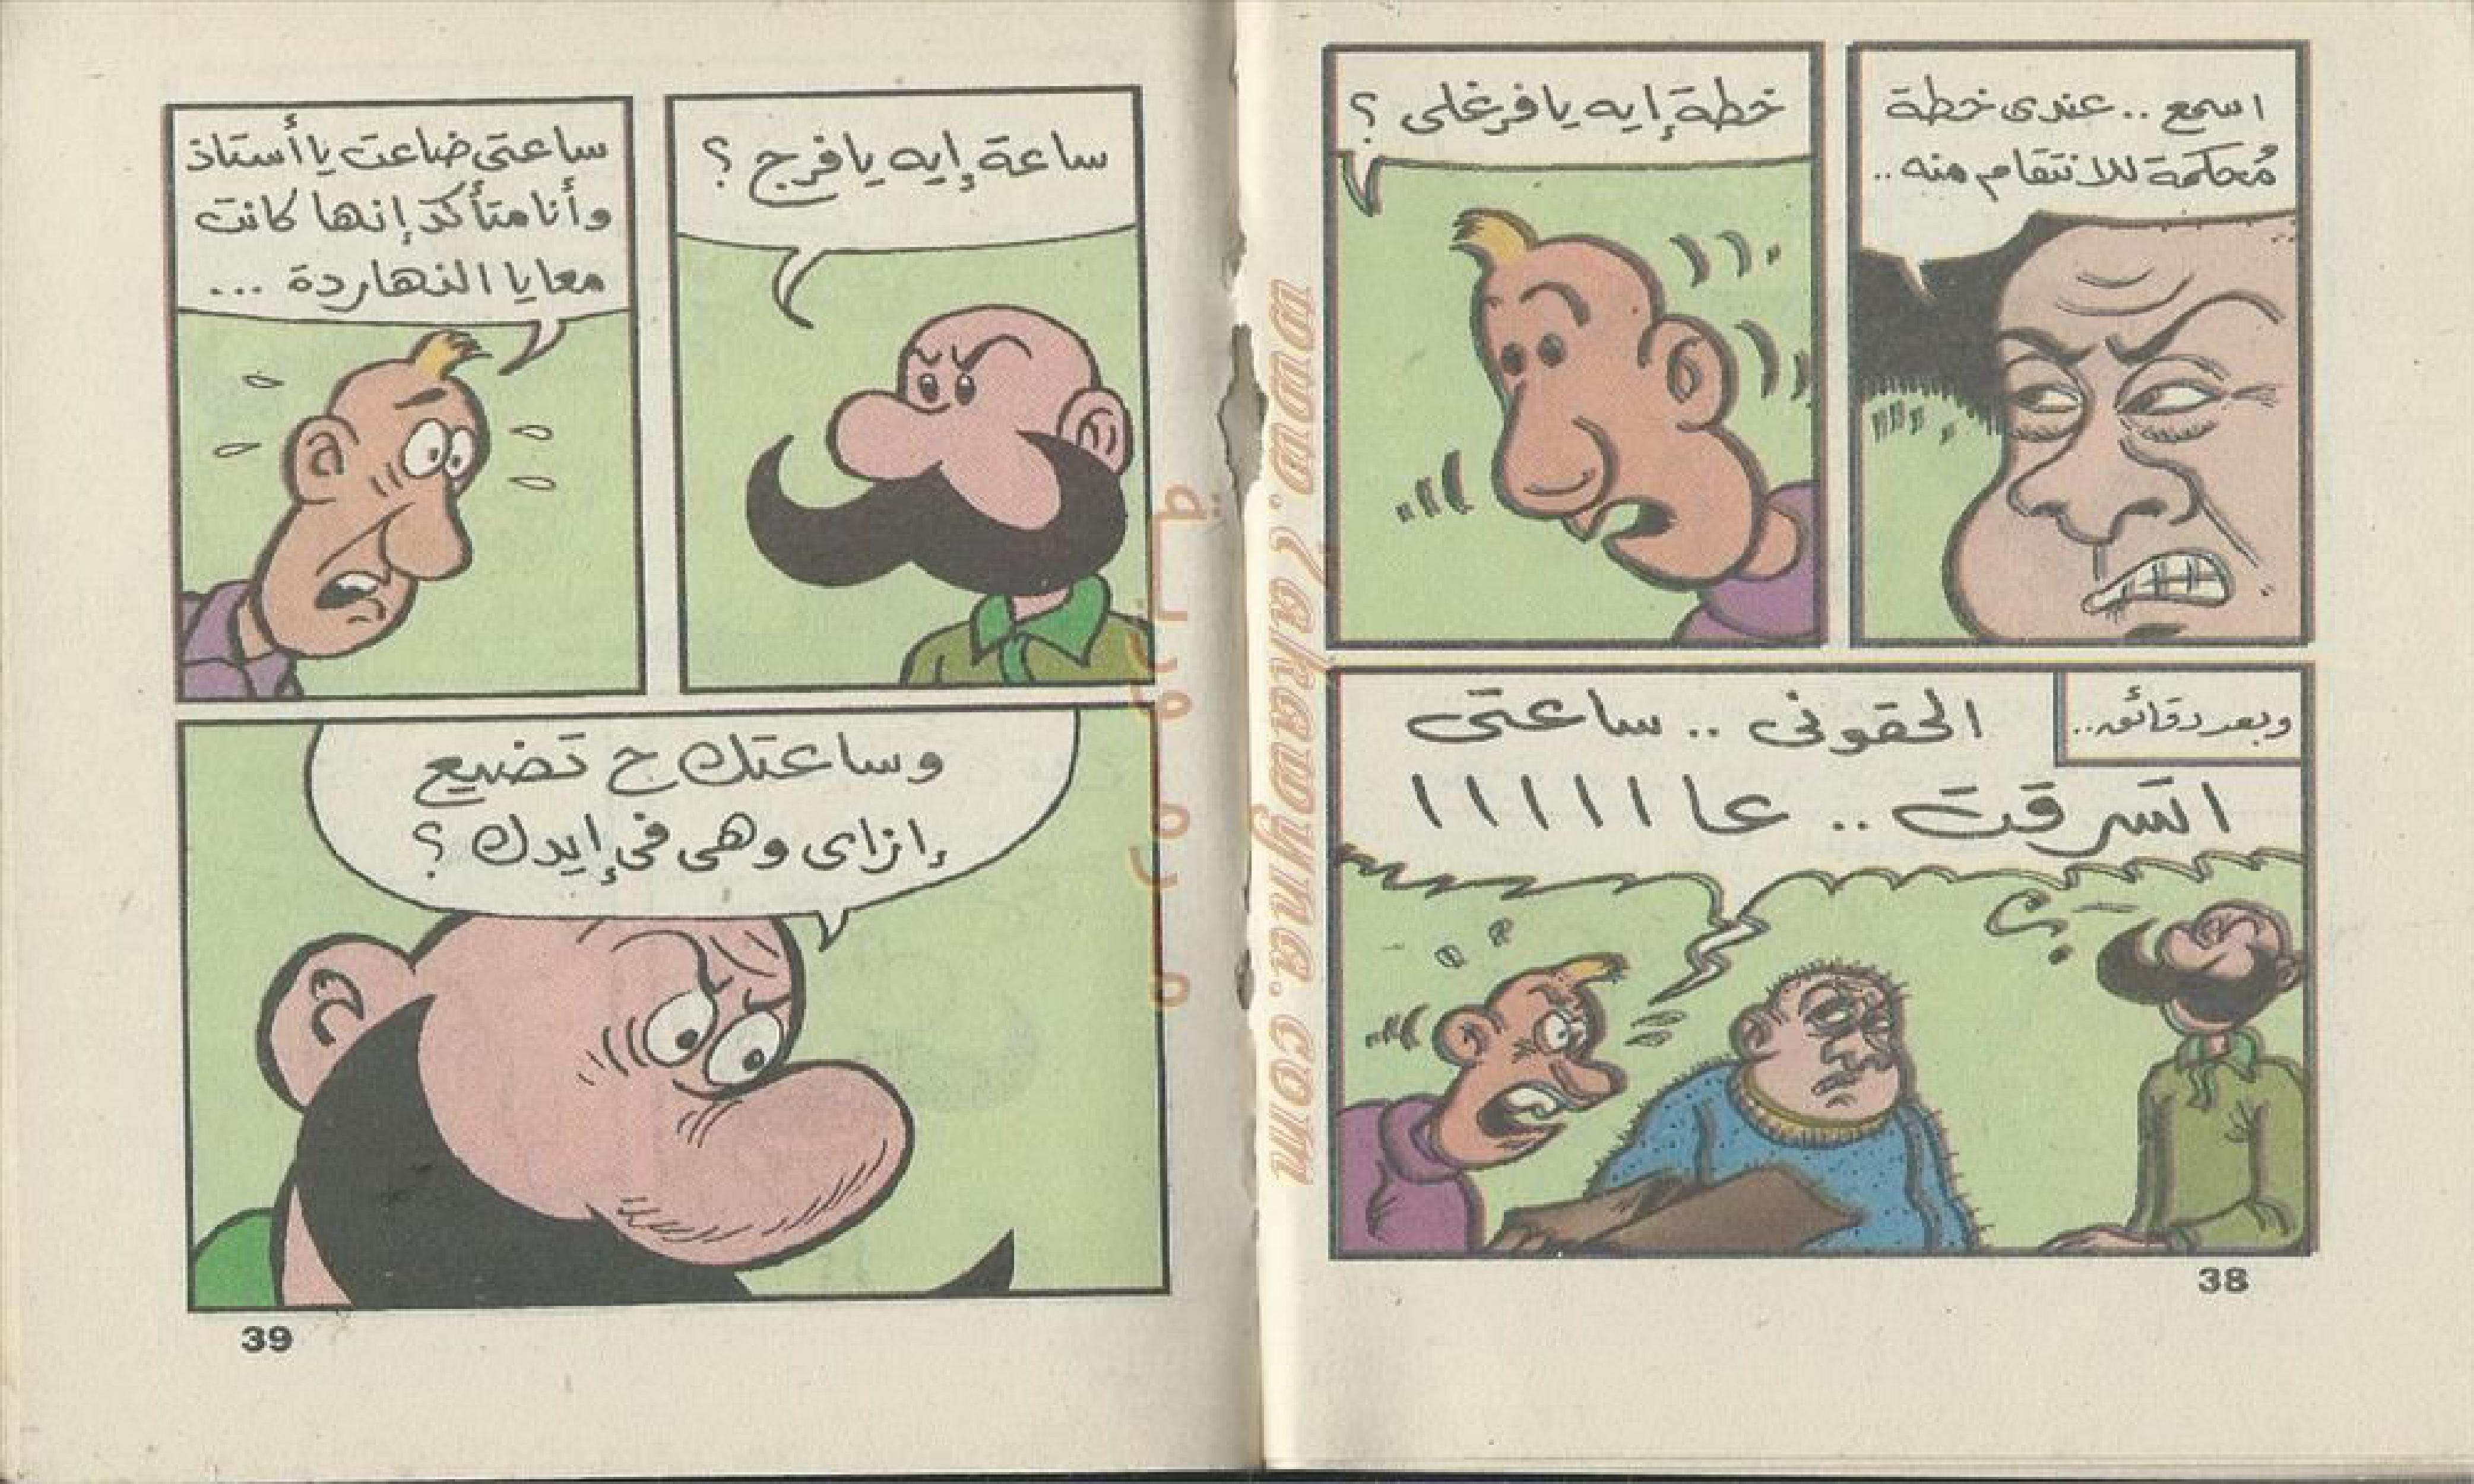 اسمع .. عندى خطة
مُحكمة للانتقام منه ..
خطة إيه يا فرغلى ؟
وبعد دقائق ..
الحقونى .. ساعتى
اتسرقت .. عا ا ا ا ا ا
38
ساعة إيه يا فرج ؟
ساعتى ضاعت يا أستاذ
وأنا متأكد إنها كانت
معايا النهاردة ...
وساعتك ح تضيع
إزاى وهى فى إيدك ؟
39
www.7akawyna.com